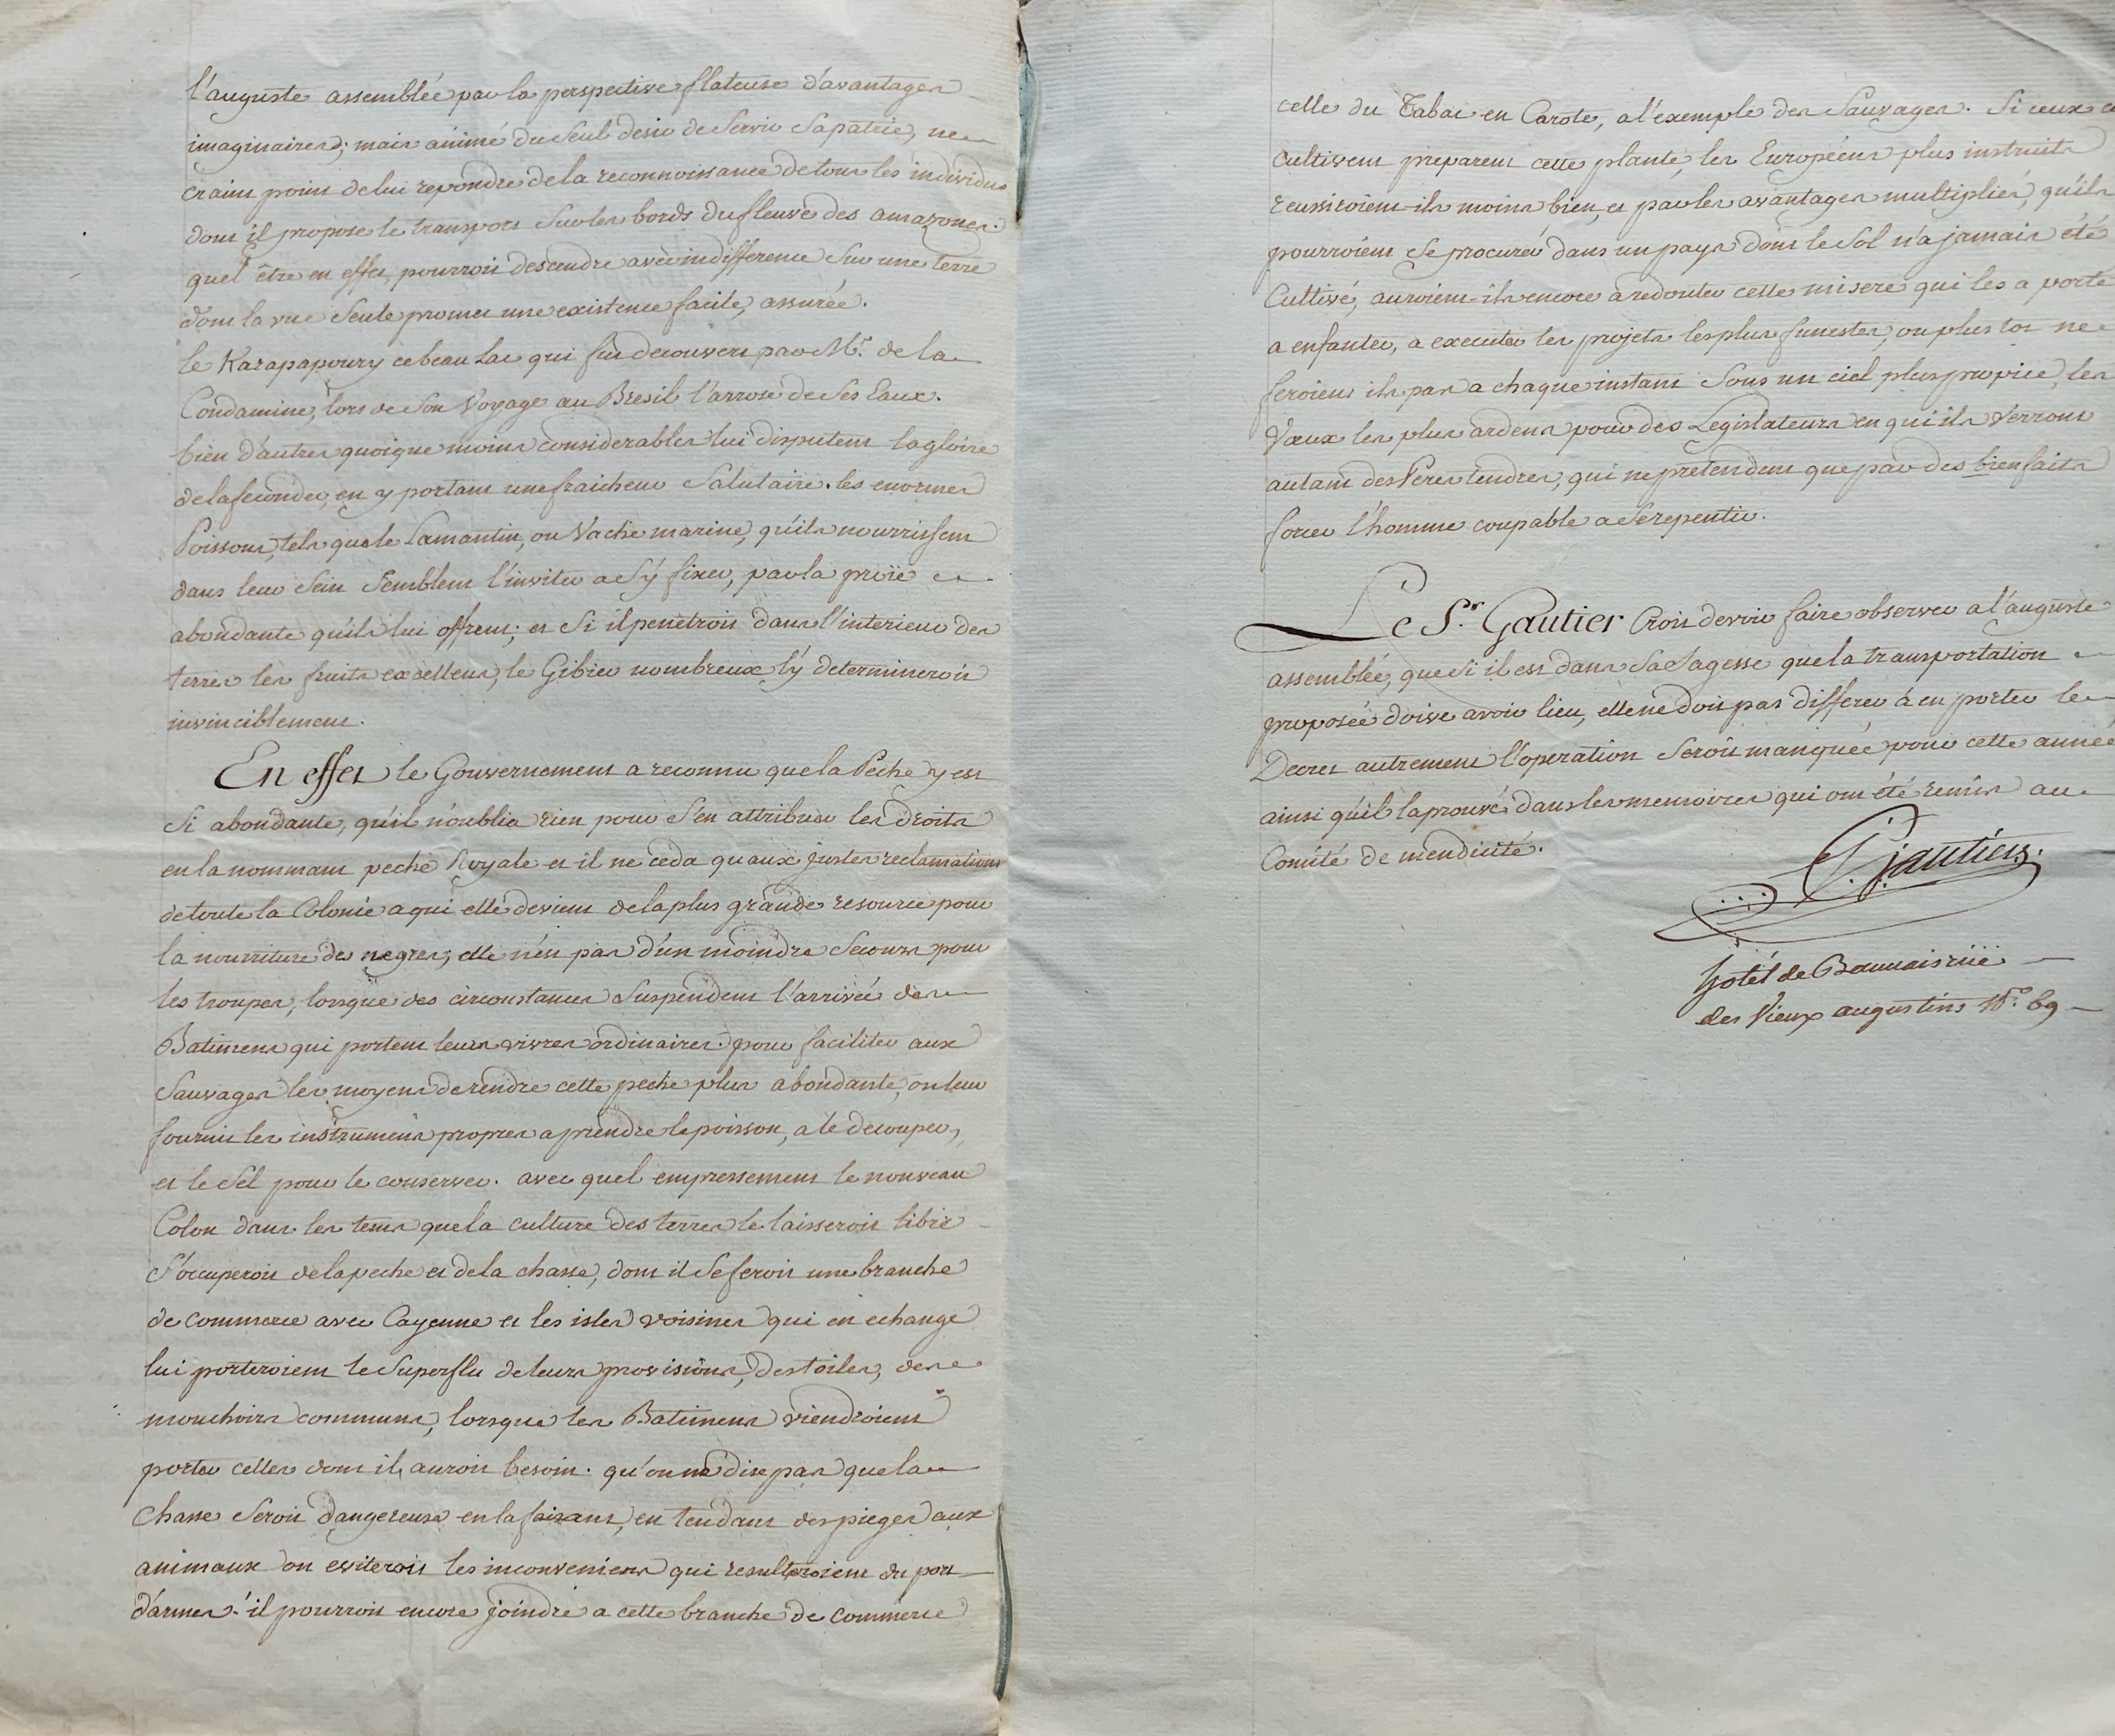 l'auguste assemblée par la perspective flateuse d'avantages
imaginaires; mais animé du seul desir de servir sa patrie, ne
craint point de lui repondre de la reconnoissance de tous les individus
dont il propose le transport sur les bords du fleuve des amazones.
quel être en effet, pourroit descendre avec indifference sur une terre
dont la vue seule promet une existence facile, assurée.
le Karapapoury ce beau Lac qui fut decouvert par Mr. de la
Condamine, lors de son Voyage au Bresil l'arrose de ses Eaux.
bien d'autres quoique moins considerables lui disputent la gloire
de la feconder, en y portant une fraicheur salutaire. les enormes
Poissons, tels que le Lamantin, ou Vache marine, qu'ils nourrissent
dans leur sein semblent l'inviter a s'y fixer, par la proie
abondante qu'ils lui offrent; et si il penetroit dans l'interieur des
terres les fruits excellens, le Gibier nombreux l'y determineroit
invinciblement.
En effet le Gouvernement a reconnu que la Pêche y est
si abondante, qu'il n'oublia rien pour s'en attribuer les droits
en la nommant peche Royale et il ne ceda qu'aux justes reclamations
de toute la Colonie a qui elle devient de la plus grande resource pour
la nourriture des negres; elle n'est pas d'un moindre secours pour
les troupes, lorsque des circonstances suspendent l'arrivée des
Batimens qui portent leurs vivres ordinaires. pour faciliter aux
Sauvages les moyens de rendre cette peche plus abondante, on leur
fournit les instrumens propres a prendre le poisson, a le decouper,
et le sel pour le conserver. avec quel empressement le nouveau
Colon dans les tems que la culture des terres le laisseroit libre
s'occuperoit de la peche et de la chasse, dont il se feroit une branche
de commerce avec Cayenne et les isles voisines qui en echange
lui porteroient le superflu de leurs provisions, des toiles, des
mouchoirs communs, lorsque les Batimens viendroient
porter celles dont il auroit besoin. qu'on ne dise pas que la
chasse seroit dangereuse en la faisant, en tendant des pieges aux
animaux on eviteroit les inconveniens qui resulteroient du port
d'armes. il pourroit encore joindre a cette branche de commerce
celle du Tabac en Carote, a l'exemple des Sauvages. Si ceux cy
cultivent preparent cette plante, les Européens plus instruits
reussiroient-ils moins bien, et par les avantages multipliés, qu'ils
pourroient se procurer dans un pays dont le sol n'a jamais été
Cultivé, auroient-ils encore a redouter cette misere qui les a porté
a enfanter, a executer les projets les plus funestes, ou plus tot ne
feroient ils pas a chaque instant sous un ciel plus propice, les
Vœux les plus ardens pour des Legislateurs en qui ils verront
autant des Peres tendres, qui ne pretendent que par des bienfaits
forcer l'homme coupable a se repentir.
Le Sr. Gautier Croit devoir faire observer a l'auguste
assemblée, que si il est dans sa sagesse que la transportation
proposée doive avoir lieu, elle ne doit pas differer à en porter le
Decret autrement l'operation seroit manquée pour cette année
ainsi qu'il l'a prouvé dans les memoires qui ont été remis au
Comité de mendicité.
Gautier.
hotel de Beauvais rüe
des Vieux augustins No. 69